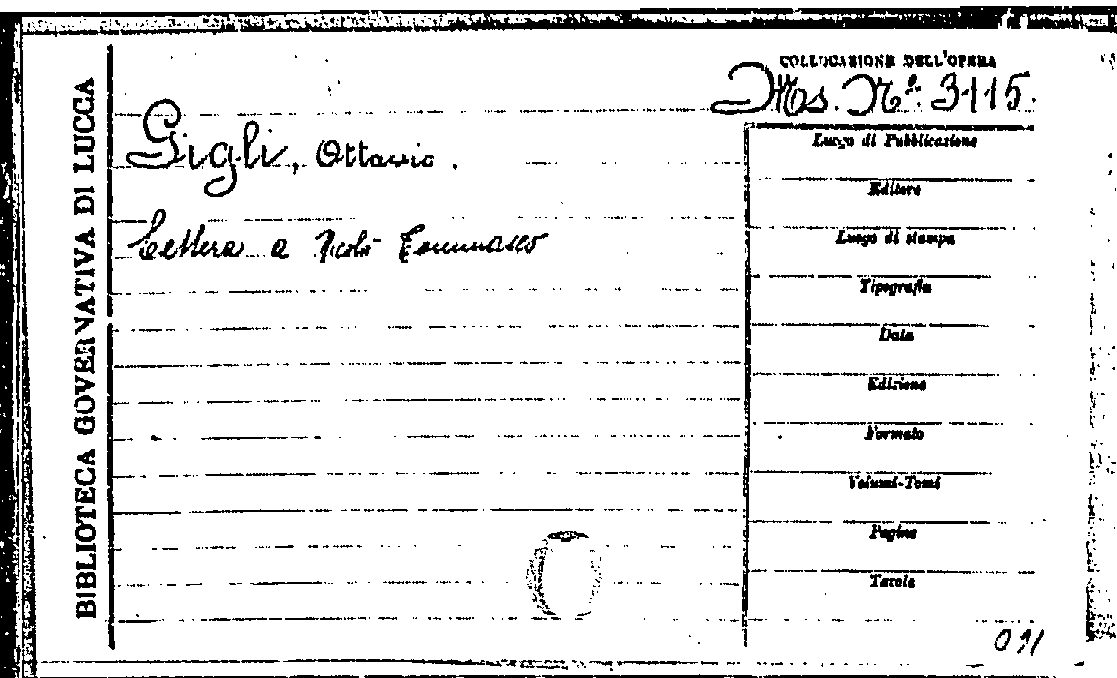 COLLOCAZIONE DELL'OPERA
Ms. Nº. 3115.
BIBLIOTECA GOVERNATIVA DI LUCCA
Gigli, Ottavio.
Lettera a Nicolò Tommaseo
Luogo di Pubblicazione
Editore
Luogo di stampa
Tipografia
Data
Edizione
Formato
Volumi-Tomi
Pagine
Tavole
091